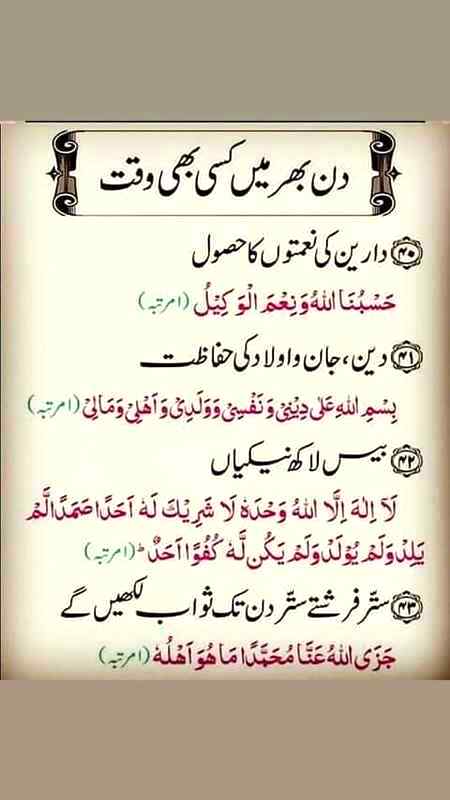 دن بھر میں کسی بھی وقت
۴۰ دارین کی نعمتوں کا حصول
حَسْبُنَا اللهُ وَنِعْمَ الْوَكِيْلُ (۱ مرتبہ)
۴۱ دین، جان و اولاد کی حفاظت
بِسْمِ اللهِ عَلٰى دِيْنِيْ وَنَفْسِيْ وَوَلَدِيْ وَاَهْلِيْ وَمَالِيْ (۱ مرتبہ)
۴۲ بیس لاکھ نیکیاں
لَآ اِلٰهَ اِلَّا اللهُ وَحْدَهٗ لَا شَرِيْكَ لَهٗ اَحَدًا صَمَدًا لَّمْ
يَلِدْ وَلَمْ يُوْلَدْ وَلَمْ يَكُنْ لَّهٗ كُفُوًا اَحَدٌ ؕ (۱ مرتبہ)
۴۳ ستّر فرشتے ستّر دن تک ثواب لکھیں گے
جَزَى اللهُ عَنَّا مُحَمَّدًا مَا هُوَ اَهْلُهٗ (۱ مرتبہ)